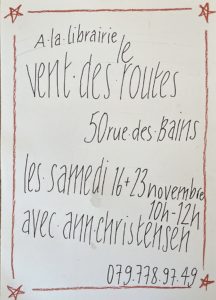 A·la·librairie le
vent·des·routes
50 rue·des·Bains
les·samedi 16+23 novembre
10h-12h
avec·ann·christensen
079.778.97.49